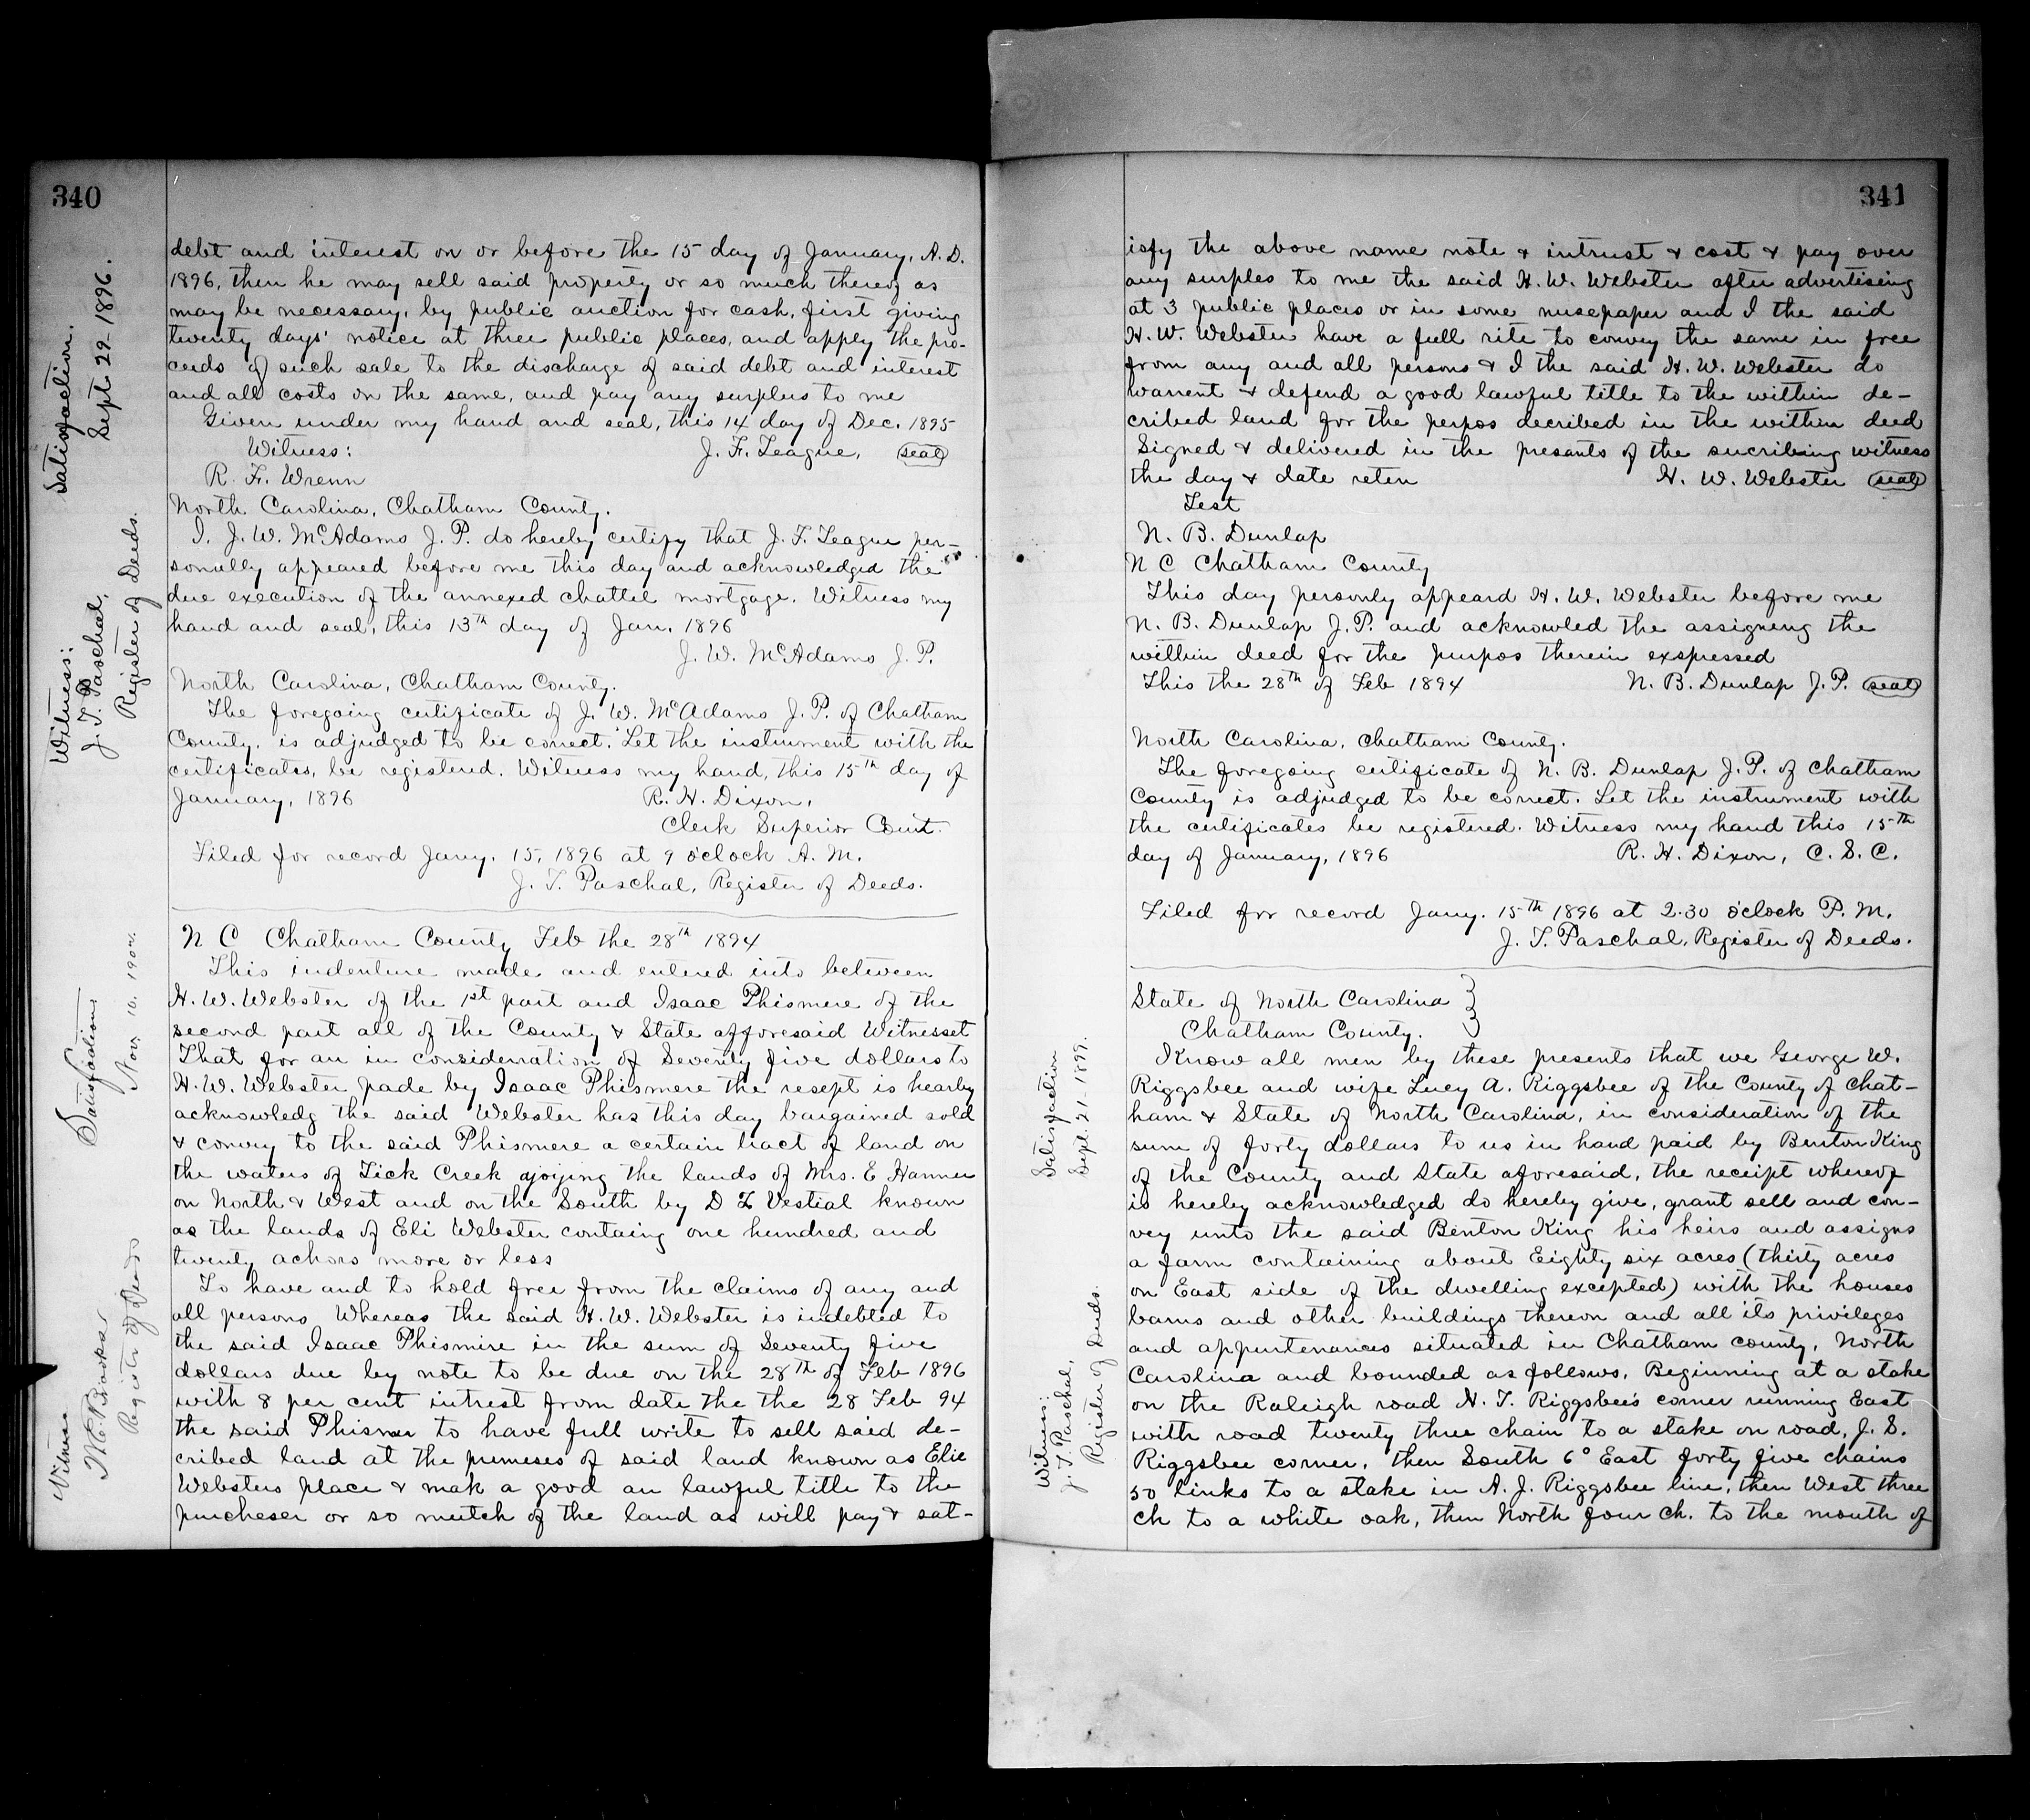 340
Satisfaction.
Sept 29 1896.
Witness:
J. T. Paschal,
Register of Deeds.
debt and interest on or before the 15 day of January, A. D.
1896, then he may sell said property or so much thereof as
may be necessary, by public auction for cash, first giving
twenty days' notice at three public places, and apply the pro-
ceeds of such sale to the discharge of said debt and interest
and all costs on the same, and pay any surplus to me
Given under my hand and seal, this 14 day of Dec. 1895
Witness: J. F. League, (seal)
R. F. Wrenn
North Carolina, Chatham County.
I. J. W. McAdams J. P. do hereby certify that J. F. League per-
sonally appeared before me this day and acknowledged the
due execution of the annexed chattel mortgage. Witness my
hand and seal, this 13th day of Jan. 1896
J. W. McAdams J. P.
North Carolina, Chatham County.
The foregoing certificate of J. W. McAdams J. P. of Chatham
County, is adjudged to be correct. Let the instrument with the
certificates, be registered. Witness my hand, this 15th day of
January, 1896 R. H. Dixon,
Clerk Superior Court.
Filed for record Jany. 15, 1896 at 9 o'clock A. M.
J. T. Paschal, Register of Deeds.
Satisfaction
Nov. 10, 1904.
Witness
Register of Deeds
N C Chatham County Feb the 28th 1894
This indenture made and entered into between
H. W. Webster of the 1st part and Isaac Phismere of the
second part all of the County & State afforesaid Witnesset
That for an in consideration of Seventy five dollars to
H. W. Webster pade by Isaac Phismere the resept is hearby
acknowledg the said Webster has this day bargained sold
& convey to the said Phismere a certain tract of land on
the waters of Tick Creek ajoying the lands of Mrs. E Hanner
on North & West and on the South by D Z Vestial known
as the lands of Eli Webster containg one hundred and
twenty achors more or less
To have and to hold free from the claims of any and
all persons Whereas the said H. W. Webster is indebted to
the said Isaac Phismire in the sum of Seventy five
dollars due by note to be due on the 28th of Feb 1896
with 8 per cent intrest from date the the 28 Feb 94
the said Phismer to have full write to sell said de-
cribed land at the premeses of said land known as Elie
Websters place & mak a good an lawful title to the
purcheser or so mutch of the land as will pay & sat-
341
isfy the above name note & intrust & cost & pay over
any surples to me the said H. W. Webster after advertising
at 3 public places or in some nusepaper and I the said
H. W. Webster have a full rite to convey the same in free
from any and all persons & I the said H. W. Webster do
warrent & defend a good lawful title to the within de-
cribed land for the perpos decribed in the within deed
Signed & delivered in the presants of the sucribing witness
the day & date reten H. W. Webster (seal)
Test
N. B. Dunlap
N C Chatham County
This day personly appeard H. W. Webster before me
N. B. Dunlap J. P. and acknowled the assigneng the
within deed for the purpos therein exspressed
This the 28th of Feb 1894 N. B. Dunlap J. P. (seal)
North Carolina, Chatham County.
The foregoing certificate of N. B. Dunlap J. P. of Chatham
County is adjudged to be correct. Let the instrument with
the certificates be registered. Witness my hand this 15th
day of January, 1896 R. H. Dixon, C. S. C.
Filed for record Jany. 15th 1896 at 2.30 o'clock P. M.
J. T. Paschal, Register of Deeds.
Satisfaction
Sept. 21- 1899.
Witness;
J. T. Paschal,
Register of Deeds.
State of North Carolina }
Chatham County. }
Know all men by these presents that we George W.
Riggsbee and wife Lucy A. Riggsbee of the County of Chat-
ham & State of North Carolina, in consideration of the
sum of forty dollars to us in hand paid by Benton King
of the County and State aforesaid, the receipt whereof
is hereby acknowledged do hereby give, grant sell and con-
vey unto the said Benton King his heirs and assigns
a farm containing about Eighty six acres (thirty acres
on East side of the dwelling excepted) with the houses
barns and other buildings thereon and all its privileges
and appurtenances situated in Chatham county, North
Carolina and bounded as follows, Beginning at a stake
on the Raleigh road N. T. Riggsbee's corner running East
with road twenty three chain to a stake on road, J. S.
Riggsbee corner, then South 6° East forty five chains
50 links to a stake in A. J. Riggsbee line, then West three
ch to a white oak, then North four ch. to the mouth of